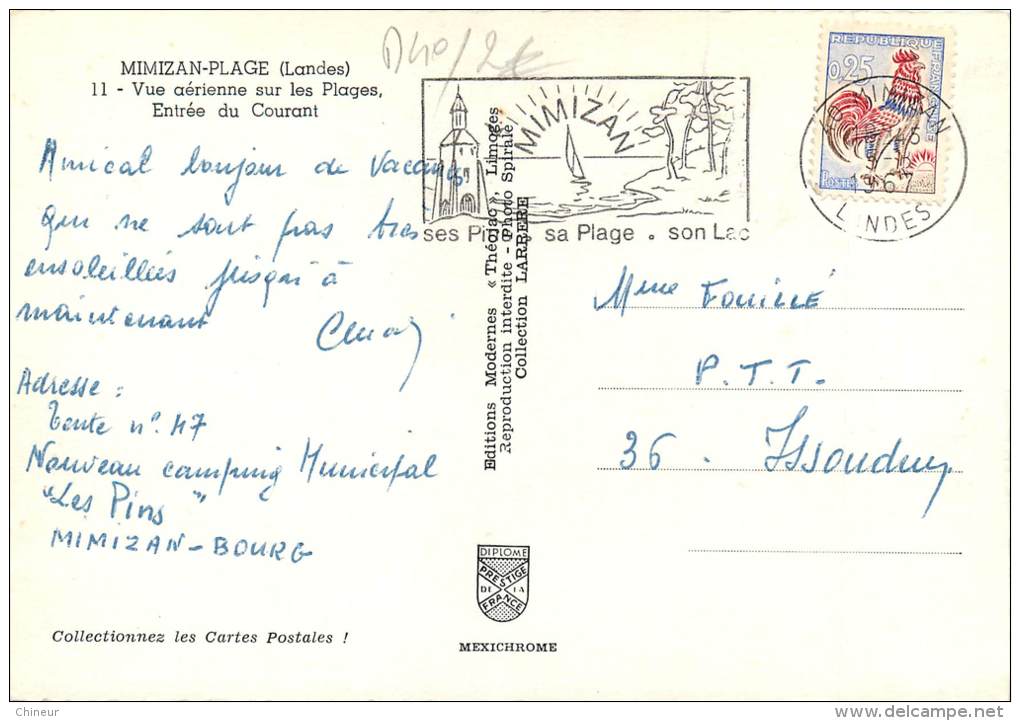 MIMIZAN-PLAGE (Landes)
11 - Vue aérienne sur les Plages,
Entrée du Courant
D40/2€
Amical bonjour de Vacances
qui ne sont pas très
ensoleillées jusqu'à
maintenant
Adresse :
Tente n° 47
Nouveau camping Municipal
"Les Pins"
MIMIZAN - BOURG
Collectionnez les Cartes Postales !
Editions Modernes « Théojac », Limoges
Reproduction interdite - Photo Spirale
Collection LARRERE
DIPLOME
PRESTIGE
DE LA
FRANCE
MEXICHROME
MIMIZAN
ses Pins . sa Plage . son Lac
REPUBLIQUE FRANÇAISE
0,25
POSTES
MIMIZAN
1967
LANDES
Mme FOUILLÉ
P.T.T.
36 . Issoudun
Chineur
delcampe.net